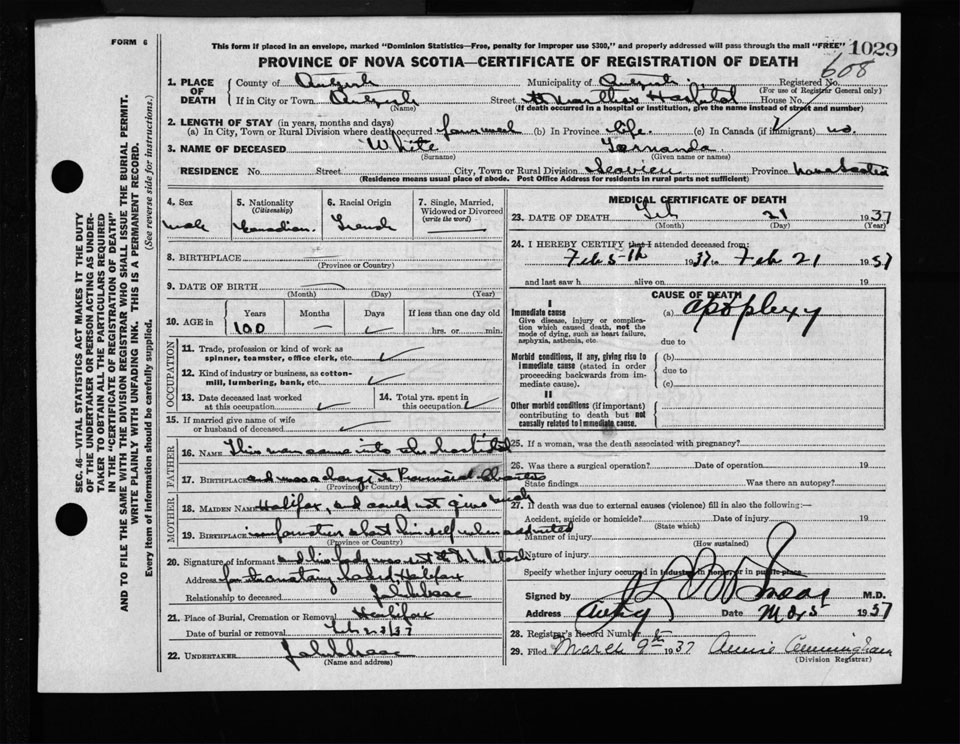 FORM 6
This form if placed in an envelope, marked "Dominion Statistics—Free, penalty for improper use $300," and properly addressed will pass through the mail "FREE"
1029
PROVINCE OF NOVA SCOTIA—CERTIFICATE OF REGISTRATION OF DEATH
608
1. PLACE OF DEATH
County of Antigonish Municipality of Antigonish Registered No.
(For use of Registrar General only)
If in City or Town Antigonish Street St Marthas Hospital House No.
(Name) (If death occurred in a hospital or institution, give the name instead of street and number)
2. LENGTH OF STAY (in years, months and days)
(a) In City, Town or Rural Division where death occurred (b) In Province life. (c) In Canada (if immigrant) no.
3. NAME OF DECEASED White Fernando
(Surname) (Given name or names)
RESIDENCE No. Street City, Town or Rural Division Province Nova Scotia
(Residence means usual place of abode. Post Office Address for residents in rural parts not sufficient)
4. Sex
male
5. Nationality (Citizenship)
Canadian.
6. Racial Origin
French
7. Single, Married, Widowed or Divorced (write the word)
8. BIRTHPLACE
(Province or Country)
9. DATE OF BIRTH
(Month) (Day) (Year)
10. AGE in Years Months Days If less than one day old
100 — ✓ hrs. or min.
OCCUPATION
11. Trade, profession or kind of work as spinner, teamster, office clerk, etc. ✓
12. Kind of industry or business, as cotton-mill, lumbering, bank, etc. ✓
13. Date deceased last worked at this occupation ✓
14. Total yrs. spent in this occupation ✓
15. If married give name of wife or husband of deceased ✓
FATHER
16. NAME This man came into the hospital
17. BIRTHPLACE and was a charge to Provincial
(Province or Country)
MOTHER
18. MAIDEN NAME Halifax, and could not give much
19. BIRTHPLACE information about himself when admitted
(Province or Country)
20. Signature of informant and his body was sent to the
Address Halifax
Relationship to deceased
21. Place of Burial, Cremation or Removal Halifax
Date of burial or removal Feb 23/37
22. UNDERTAKER
(Name and address)
MEDICAL CERTIFICATE OF DEATH
23. DATE OF DEATH Feb 21 1937
(Month) (Day) (Year)
24. I HEREBY CERTIFY that I attended deceased from:
Feb 5th 1937 to Feb 21 1937
and last saw h alive on 19
CAUSE OF DEATH
I
Immediate cause
Give disease, injury or complication which caused death, not the mode of dying, such as heart failure, asphyxia, asthenia, etc.
(a) apoplexy
due to
Morbid conditions, if any, giving rise to immediate cause (stated in order proceeding backwards from immediate cause).
(b)
due to
(c)
II
Other morbid conditions (if important) contributing to death but not causally related to immediate cause.
25. If a woman, was the death associated with pregnancy?
26. Was there a surgical operation? Date of operation 19
State findings Was there an autopsy?
27. If death was due to external causes (violence) fill in also the following:—
Accident, suicide or homicide? Date of injury 19
(State which)
Manner of injury
(How sustained)
Nature of injury
Specify whether injury occurred in industry, in home, or in public place
Signed by M.D.
Address Date Mar 5 1937
28. Registrar's Record Number
29. Filed March 9th 1937 Annie Cunningham
(Division Registrar)
SEC. 46—VITAL STATISTICS ACT MAKES IT THE DUTY
OF THE UNDERTAKER OR PERSON ACTING AS UNDER-
TAKER TO OBTAIN ALL THE PARTICULARS REQUIRED
IN THE "CERTIFICATE OF REGISTRATION OF DEATH"
AND TO FILE THE SAME WITH THE DIVISION REGISTRAR WHO SHALL ISSUE THE BURIAL PERMIT.
WRITE PLAINLY WITH UNFADING INK. THIS IS A PERMANENT RECORD.
Every item of information should be carefully supplied. (See reverse side for instructions.)